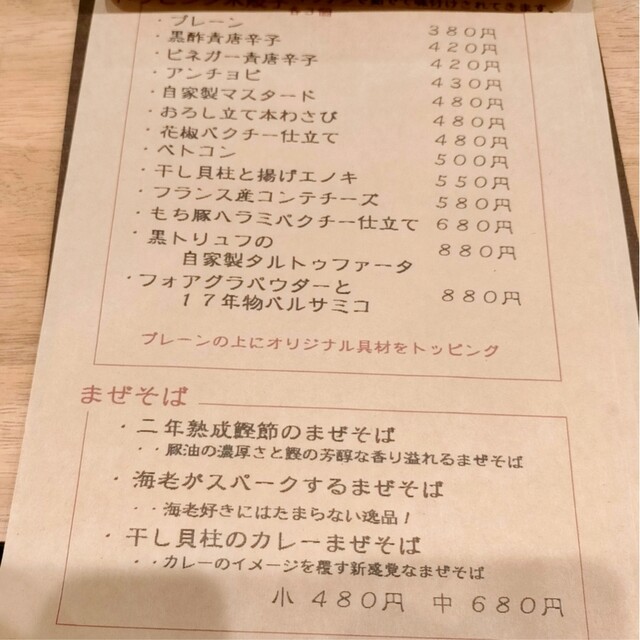 各3個
・プレーン 380円
・黒酢青唐辛子 420円
・ビネガー青唐辛子 420円
・アンチョビ 430円
・自家製マスタード 480円
・おろし立て本わさび 480円
・花椒パクチー仕立て 480円
・ペトコン 500円
・干し貝柱と揚げエノキ 550円
・フランス産コンテチーズ 580円
・もち豚ハラミパクチー仕立て 680円
・黒トリュフの
自家製タルトゥファータ 880円
・フォアグラパウダーと
17年物バルサミコ 880円
プレーンの上にオリジナル具材をトッピング
まぜそば
・二年熟成鰹節のまぜそば
・・豚油の濃厚さと鰹の芳醇な香り溢れるまぜそば
・海老がスパークするまぜそば
・・海老好きにはたまらない逸品！
・干し貝柱のカレーまぜそば
・・カレーのイメージを覆す新感覚なまぜそば
小 480円 中 680円